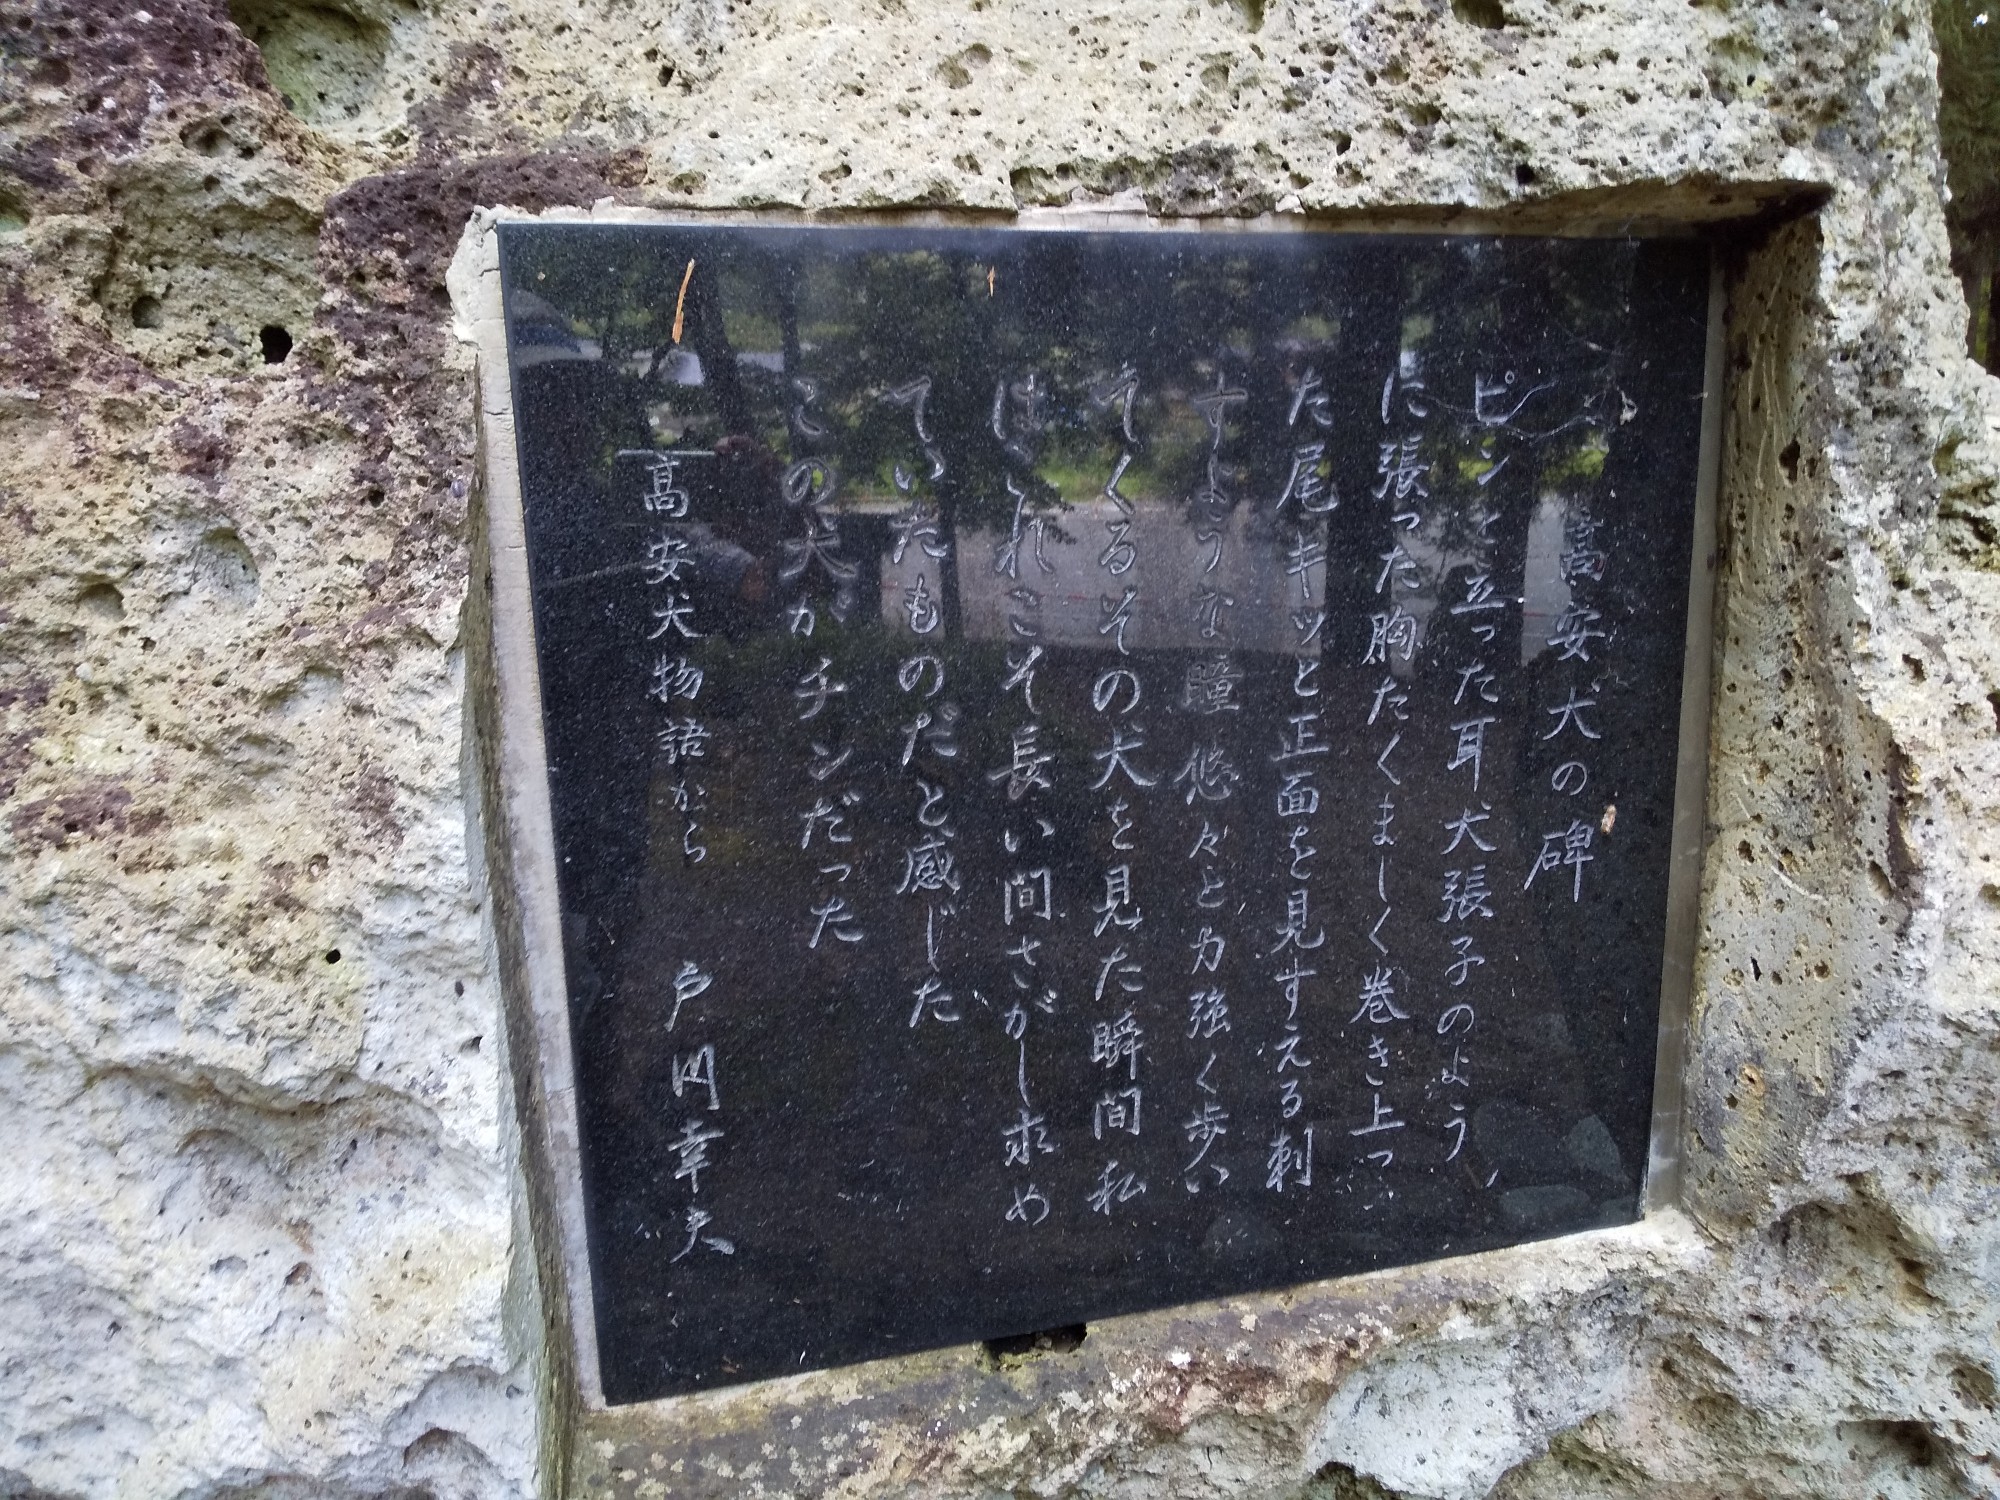 高安犬の碑
ピンと立った耳犬張子のよう
に張った胸たくましく巻き上っ
た尾キッと正面を見すえる刺
すような瞳悠々と力強く歩い
てくるその犬を見た瞬間私
はこれこそ長い間さがし求め
ていたものだと感じた
この犬がチンだった
高安犬物語から 戸川幸夫